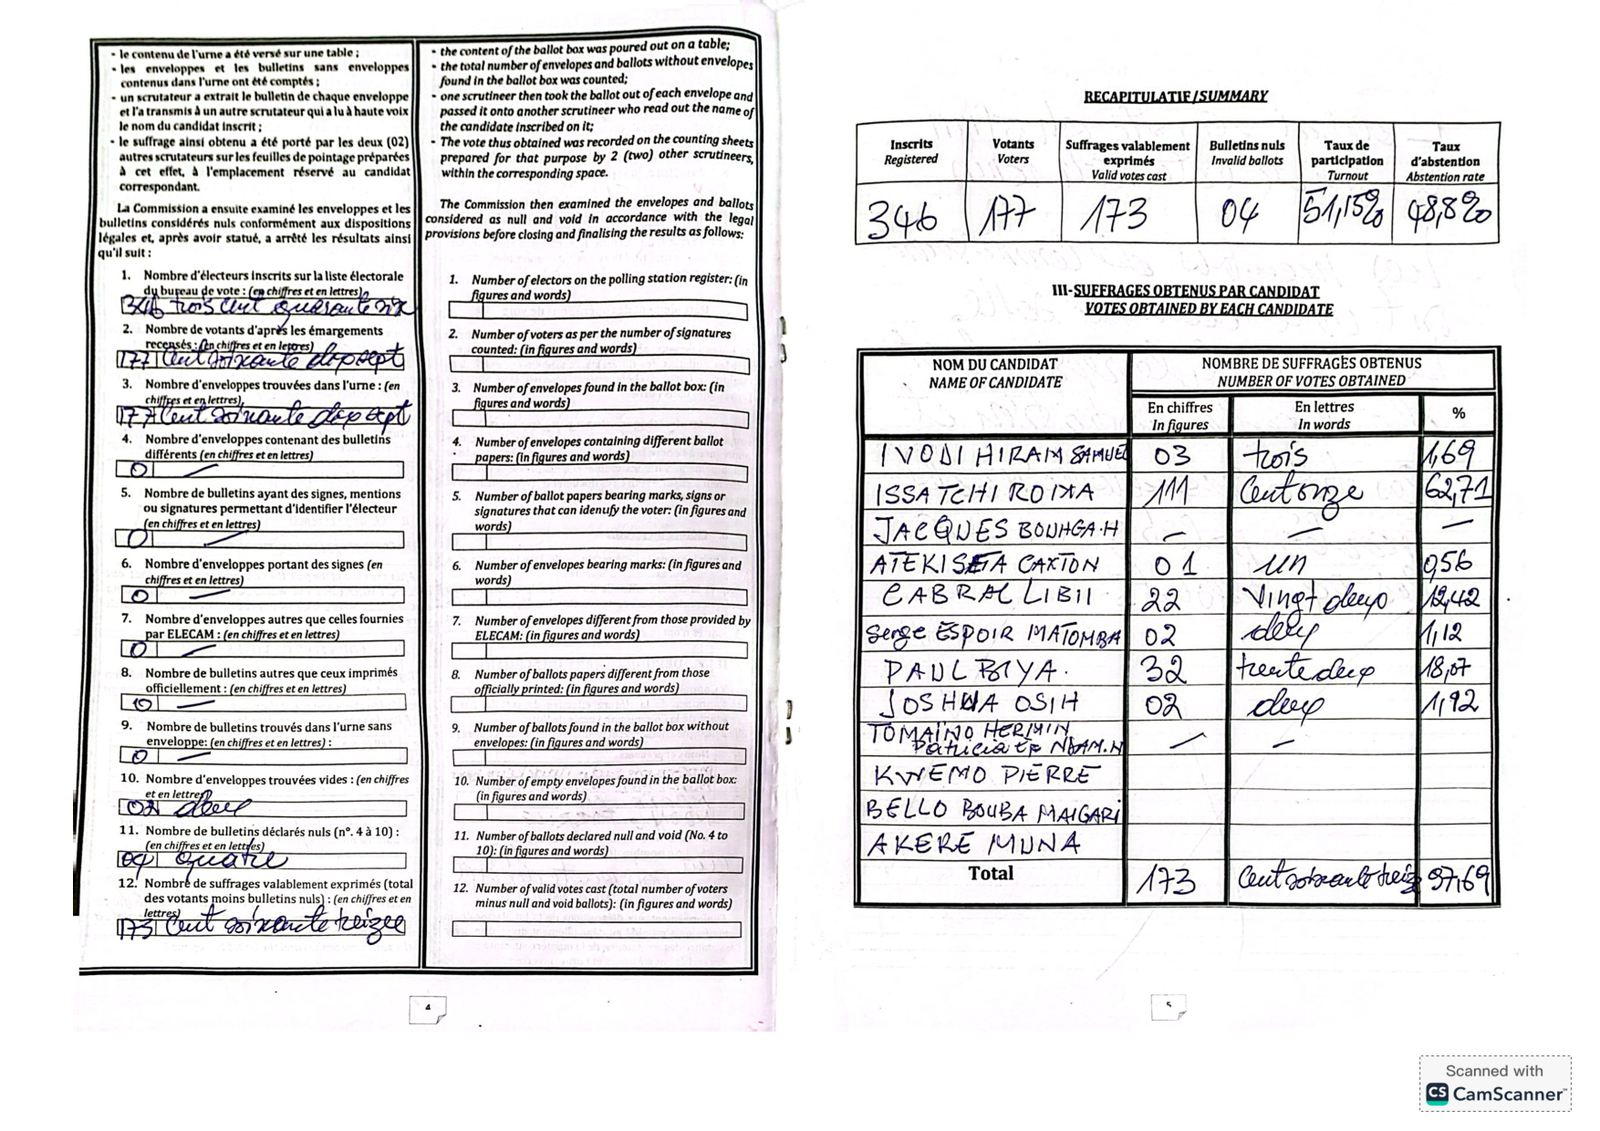 - le contenu de l'urne a été versé sur une table ;
- les enveloppes et les bulletins sans enveloppes
contenus dans l'urne ont été comptés ;
- un scrutateur a extrait le bulletin de chaque enveloppe
et l'a transmis à un autre scrutateur qui a lu à haute voix
le nom du candidat inscrit ;
- le suffrage ainsi obtenu a été porté par les deux (02)
autres scrutateurs sur les feuilles de pointage préparées
à cet effet, à l'emplacement réservé au candidat
correspondant.
La Commission a ensuite examiné les enveloppes et les
bulletins considérés nuls conformément aux dispositions
légales et, après avoir statué, a arrêté les résultats ainsi
qu'il suit :
1. Nombre d'électeurs inscrits sur la liste électorale
du bureau de vote : (en chiffres et en lettres)
346 trois cent quarante six
2. Nombre de votants d'après les émargements
recensés : (en chiffres et en lettres)
177 Cent soixante dix sept
3. Nombre d'enveloppes trouvées dans l'urne : (en
chiffres et en lettres)
177 Cent soixante dix sept
4. Nombre d'enveloppes contenant des bulletins
différents (en chiffres et en lettres)
0 —
5. Nombre de bulletins ayant des signes, mentions
ou signatures permettant d'identifier l'électeur
(en chiffres et en lettres)
0 —
6. Nombre d'enveloppes portant des signes (en
chiffres et en lettres)
0 —
7. Nombre d'enveloppes autres que celles fournies
par ELECAM : (en chiffres et en lettres)
0 —
8. Nombre de bulletins autres que ceux imprimés
officiellement : (en chiffres et en lettres)
0 —
9. Nombre de bulletins trouvés dans l'urne sans
enveloppe: (en chiffres et en lettres) :
0 —
10. Nombre d'enveloppes trouvées vides : (en chiffres
et en lettres)
02 deux
11. Nombre de bulletins déclarés nuls (n°. 4 à 10) :
(en chiffres et en lettres)
04 quatre
12. Nombre de suffrages valablement exprimés (total
des votants moins bulletins nuls) : (en chiffres et en
lettres)
173 Cent soixante treize
4
- the content of the ballot box was poured out on a table;
- the total number of envelopes and ballots without envelopes
found in the ballot box was counted;
- one scrutineer then took the ballot out of each envelope and
passed it onto another scrutineer who read out the name of
the candidate inscribed on it;
- The vote thus obtained was recorded on the counting sheets
prepared for that purpose by 2 (two) other scrutineers,
within the corresponding space.
The Commission then examined the envelopes and ballots
considered as null and void in accordance with the legal
provisions before closing and finalising the results as follows:
1. Number of electors on the polling station register: (in
figures and words)
2. Number of voters as per the number of signatures
counted: (in figures and words)
3. Number of envelopes found in the ballot box: (in
figures and words)
4. Number of envelopes containing different ballot
papers: (in figures and words)
5. Number of ballot papers bearing marks, signs or
signatures that can idenufy the voter: (in figures and
words)
6. Number of envelopes bearing marks: (in figures and
words)
7. Number of envelopes different from those provided by
ELECAM: (in figures and words)
8. Number of ballots papers different from those
officially printed: (in figures and words)
9. Number of ballots found in the ballot box without
envelopes: (in figures and words)
10. Number of empty envelopes found in the ballot box:
(in figures and words)
11. Number of ballots declared null and void (No. 4 to
10): (in figures and words)
12. Number of valid votes cast (total number of voters
minus null and void ballots): (in figures and words)
RECAPITULATIF/SUMMARY
Inscrits Registered Votants Voters Suffrages valablement exprimés Valid votes cast Bulletins nuls Invalid ballots Taux de participation Turnout Taux d'abstention Abstention rate
346 177 173 04 51,15% 48,8%
III-SUFFRAGES OBTENUS PAR CANDIDAT
VOTES OBTAINED BY EACH CANDIDATE
NOM DU CANDIDAT NOMBRE DE SUFFRAGES OBTENUS
NAME OF CANDIDATE NUMBER OF VOTES OBTAINED
En chiffres En lettres %
In figures In words
IYODI HIRAM SAMUEL 03 trois 1,69
ISSA TCHIROIXA 111 Cent onze 62,71
JACQUES BOUHGA.H — — —
ATEKISEA CAXTON 01 un 0,56
CABRAL LIBII 22 Vingt deux 12,42
Serge ESPOIR MATOMBA 02 deux 1,12
PAUL BIYA. 32 trente deux 18,07
JOSHUA OSIH 02 deux 1,12
TOMAÏNO HERMIN
Patricia Ep NDAM.N — —
KWEMO PIERRE
BELLO BOUBA MAIGARI
AKERE MUNA
Total 173 Cent soixante treize 97,69
5
Scanned with
CS CamScanner